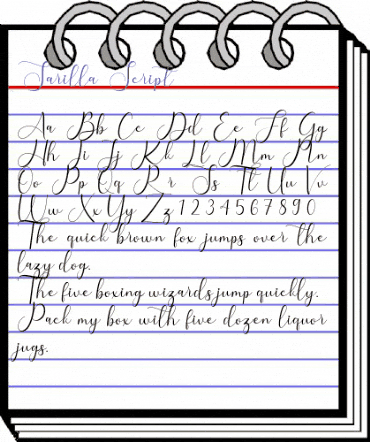 Sarilla Script
Aa Bb Cc Dd Ee Ff Gg
Hh Ii Jj Kk Ll Mm Nn
Oo Pp Qq Rr Ss Tt Uu Vv
Ww Xx Yy Zz 1234567890
The quick brown fox jumps over the
lazy dog.
The five boxing wizards jump quickly.
Pack my box with five dozen liquor
jugs.